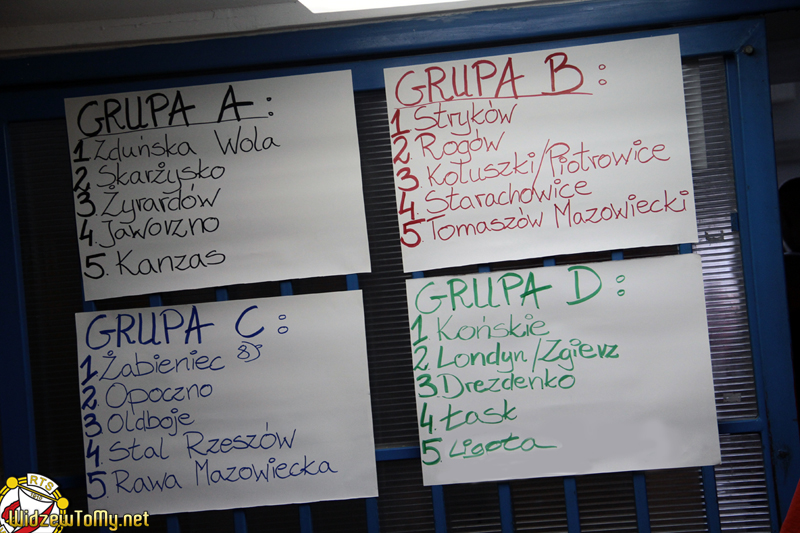 GRUPA A :
1 Zduńska Wola
2. Skarżysko
3. Żyrardów
4. Jaworzno
5. Kanzas
GRUPA B :
1 Stryków
2. Rogów
3. Koluszki/Piotrowice
4. Starachowice
5. Tomaszów Mazowiecki
GRUPA C :
1 Żabieniec
2 Opoczno
3 Oldboje
4 Stal Rzeszów
5. Rawa Mazowiecka
GRUPA D :
1 Końskie
2. Londyn/Zgierz
3. Drezdenko
4. Łask
5. Ligota
RTS
WidzewToMy.net